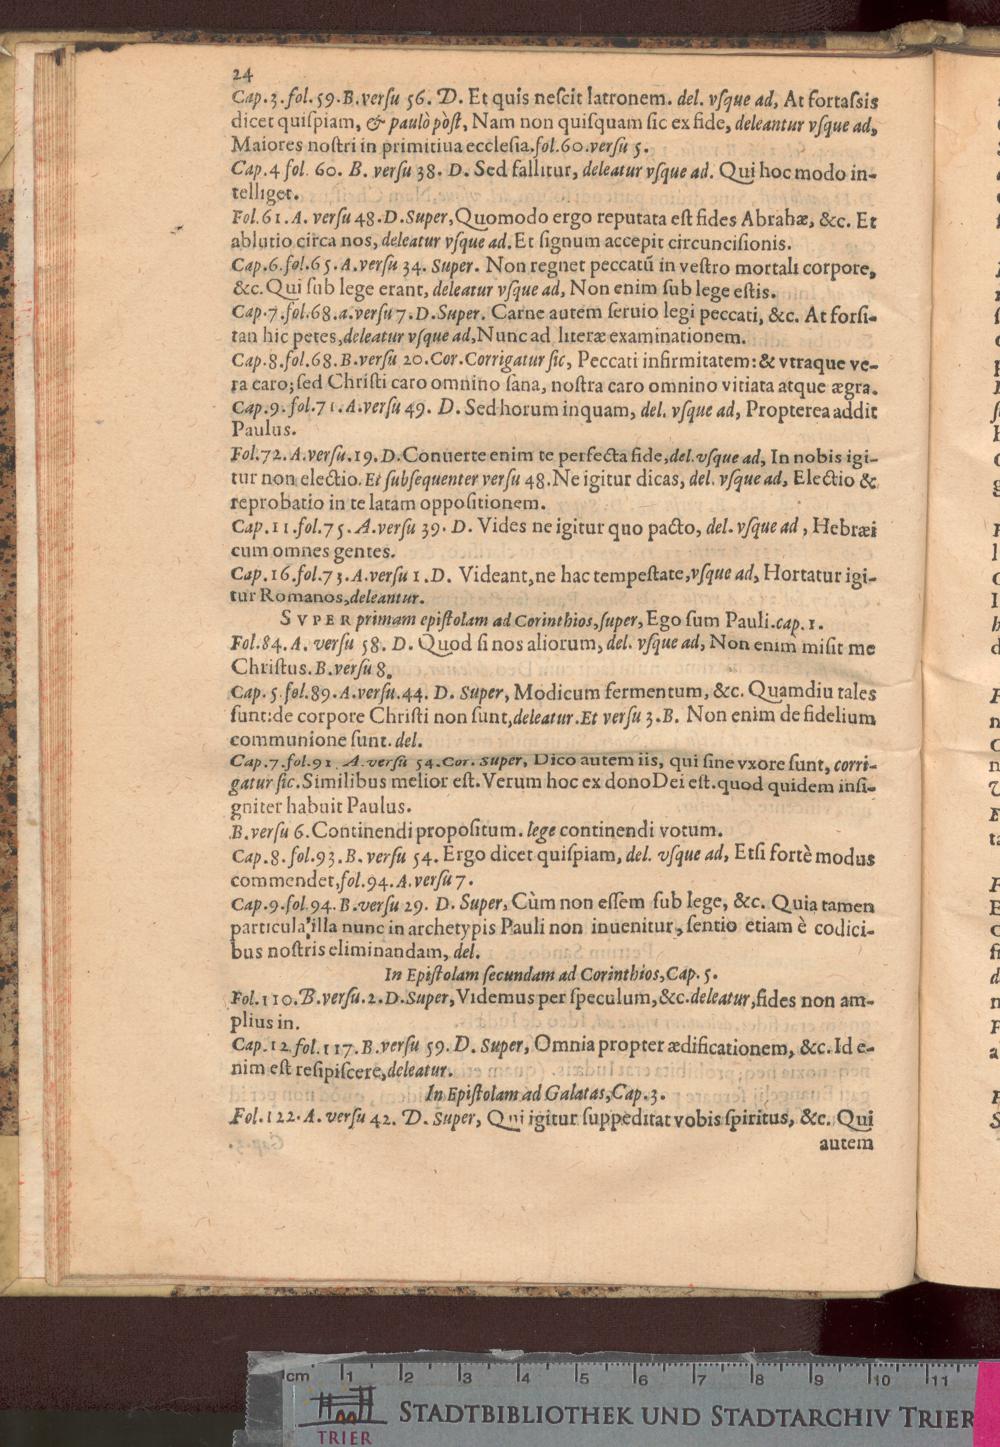 24
Cap.3.fol.59.B.versu 56. D. Et quis nescit latronem. del. vsque ad, At fortassis
dicet quispiam, & paulò pòst, Nam non quisquam sic ex fide, deleantur vsque ad,
Maiores nostri in primitiua ecclesia.fol.60.versu 5.
Cap.4 fol. 60. B. versu 38. D. Sed fallitur, deleatur vsque ad. Qui hoc modo in-
telliget.
Fol.61.A. versu 48.D.Super, Quomodo ergo reputata est fides Abrahæ, &c. Et
ablutio circa nos, deleatur vsque ad. Et signum accepit circuncisionis.
Cap.6.fol.65.A.versu 34. Super. Non regnet peccatū in vestro mortali corpore,
&c. Qui sub lege erant, deleatur vsque ad, Non enim sub lege estis.
Cap.7.fol.68.a.versu 7.D.Super. Carne autem seruio legi peccati, &c. At forsi-
tan hic petes, deleatur vsque ad, Nunc ad literæ examinationem.
Cap.8.fol.68.B.versu 20.Cor.Corrigatur sic, Peccati infirmitatem: & vtraque ve-
ra caro; sed Christi caro omnino sana, nostra caro omnino vitiata atque ægra.
Cap.9.fol.71.A.versu 49. D. Sed horum inquam, del. vsque ad, Propterea addit
Paulus.
Fol.72.A.versu.19.D.Conuerte enim te perfecta fide, del.vsque ad, In nobis igi-
tur non electio. Et subsequenter versu 48.Ne igitur dicas, del. vsque ad, Electio &
reprobatio in te latam oppositionem.
Cap.11.fol.75.A.versu 39. D. Vides ne igitur quo pacto, del. vsque ad, Hebræi
cum omnes gentes.
Cap.16.fol.73.A.versu 1.D. Videant, ne hac tempestate, vsque ad, Hortatur igi-
tur Romanos, deleantur.
SVPER primam epistolam ad Corinthios, super, Ego sum Pauli.cap.1.
Fol.84.A. versu 58. D. Quod si nos aliorum, del. vsque ad, Non enim misit me
Christus. B.versu 8.
Cap. 5.fol.89.A.versu.44. D. Super, Modicum fermentum, &c. Quamdiu tales
sunt: de corpore Christi non sunt, deleatur. Et versu 3.B. Non enim de fidelium
communione sunt. del.
Cap.7.fol.91.A.versu 54.Cor. Super, Dico autem iis, qui sine vxore sunt, corri-
gatur sic. Similibus melior est. Verum hoc ex dono Dei est. quod quidem insi-
gniter habuit Paulus.
B.versu 6. Continendi propositum. lege continendi votum.
Cap.8.fol.93.B.versu 54. Ergo dicet quispiam, del. vsque ad, Etsi fortè modus
commendet, fol.94.A.versu 7.
Cap.9.fol.94.B.versu 29. D. Super, Cùm non essem sub lege, &c. Quia tamen
particula illa nunc in archetypis Pauli non inuenitur, sentio etiam è codici-
bus nostris eliminandam, del.
In Epistolam secundam ad Corinthios, Cap. 5.
Fol.110.B.versu.2.D.Super, Videmus per speculum, &c. deleatur, fides non am-
plius in.
Cap.12.fol.117.B.versu 59. D. Super, Omnia propter ædificationem, &c. Id e-
nim est resipiscere, deleatur.
In Epistolam ad Galatas, Cap.3.
Fol.122.A.versu 42. D. Super, Qui igitur suppeditat vobis spiritus, &c. Qui
autem
cm 1 2 3 4 5 6 7 8 9 10 11
STADTBIBLIOTHEK UND STADTARCHIV TRIER
TRIER